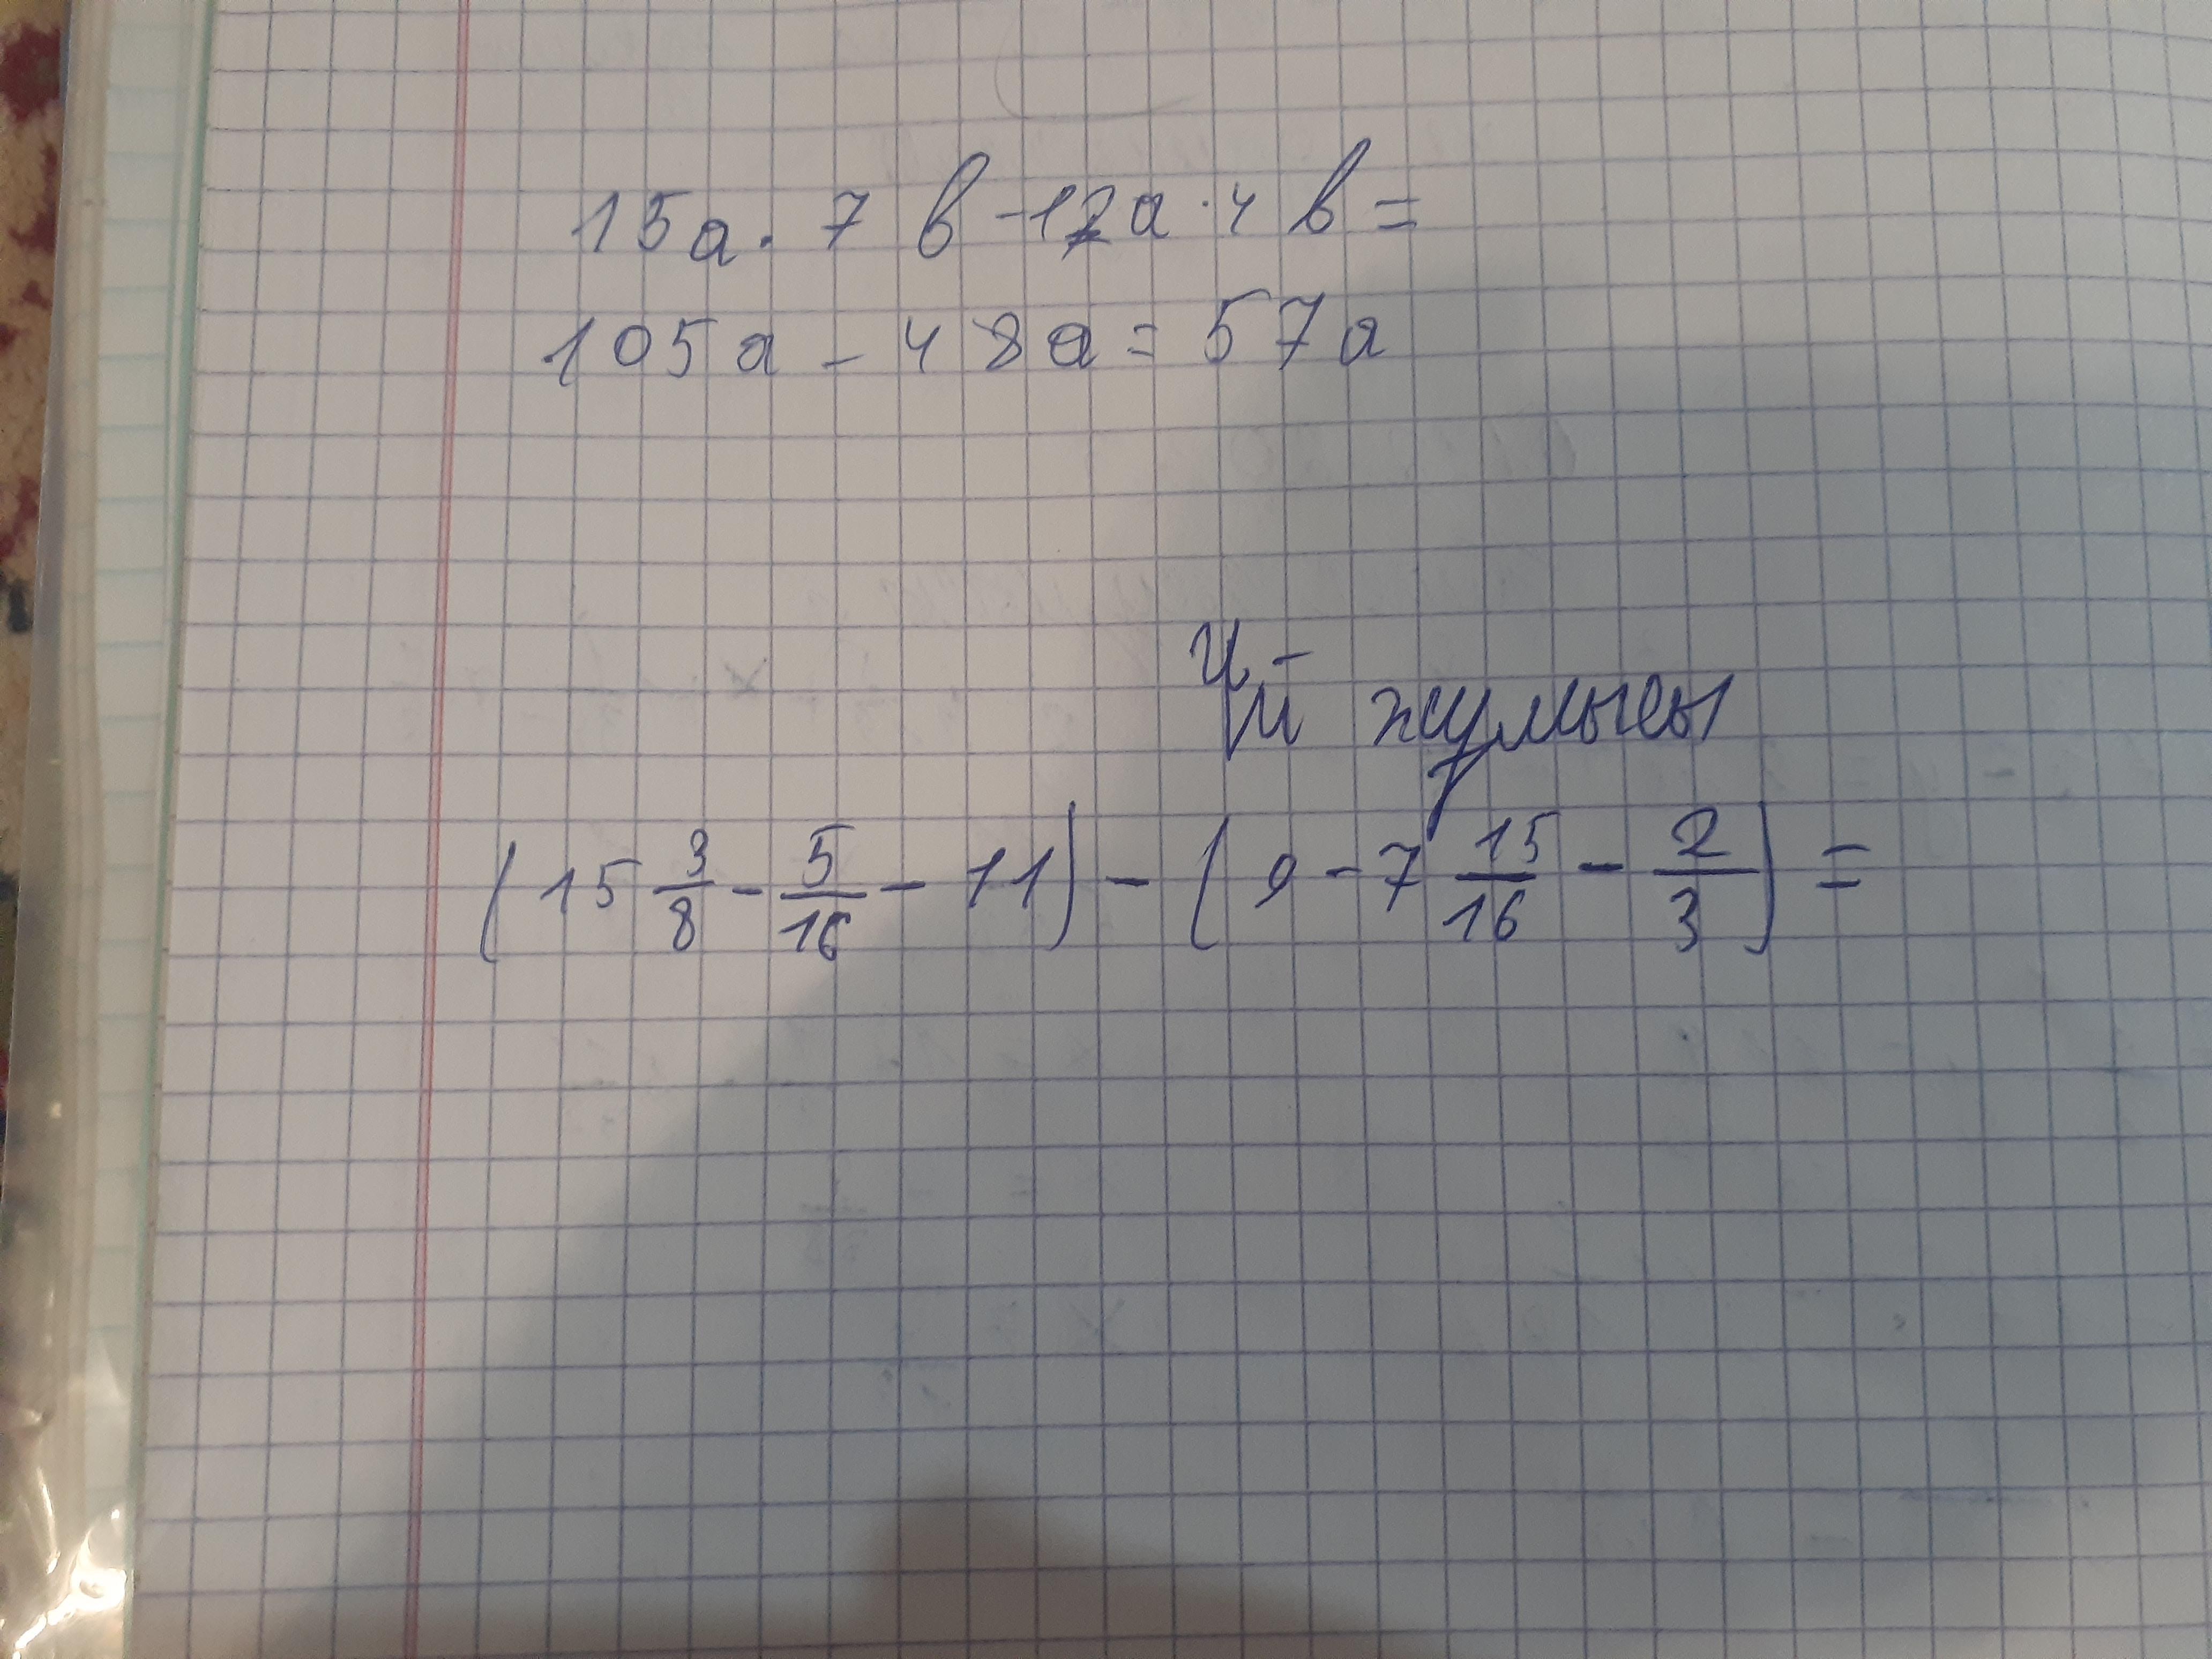 15а · 7 в - 12а · 4 в =
105а - 48а = 57а
Үй жұмысы
(15 3/8 - 5/16 - 11) - (9 - 7 15/16 - 2/3) =